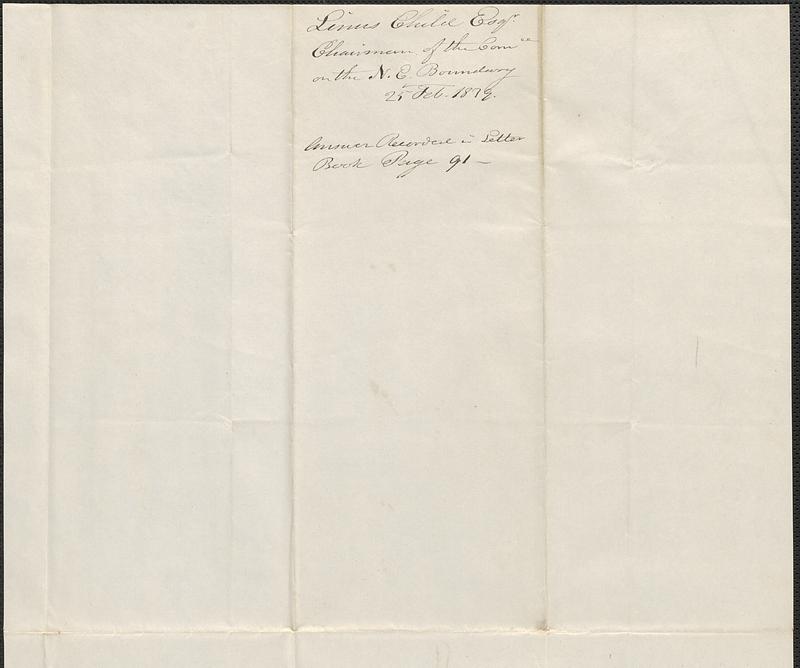 Linus Child Esqr.
Chairman of the Comee
on the N. E. Boundary
25 Feb. 1839.
Answer Recorded in Letter
Book Page 91 —